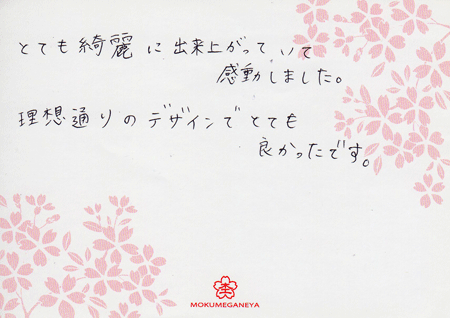 とても綺麗に出来上がっていて
感動しました。
理想通りのデザインでとても
良かったです。
MOKUMEGANEYA